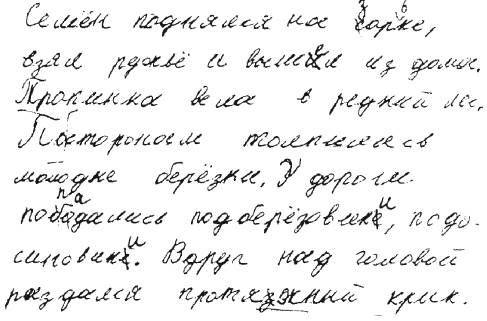 Семён поднялся на зарьке,
взял ружьё и вышел из дома.
Тропинка вела в редкий лес.
Постороном толпились
молодые берёзки. У дороги
попадались подберёзовики, подо-
синовики. Вдруг над головой
раздался крик.